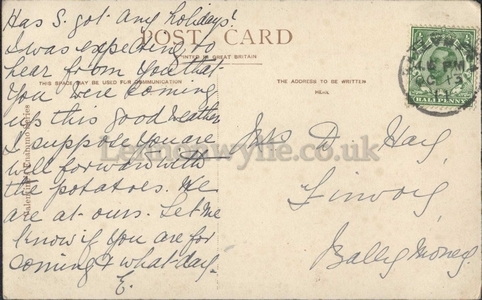 Has S. got any holidays!
I was expecting to
hear from you that
you were coming
up this good weather
I suppose you are
well forward with
the potatoes. We
are at ours. Let me
know if you are for
coming & what day.
E.
POST CARD
PRINTED IN GREAT BRITAIN
THIS SPACE MAY BE USED FOR COMMUNICATION
THE ADDRESS TO BE WRITTEN
HERE
HALFPENNY
OC 13
11
Mrs D Hay,
Finvoy,
Ballymoney.
Lennonwylie.co.uk